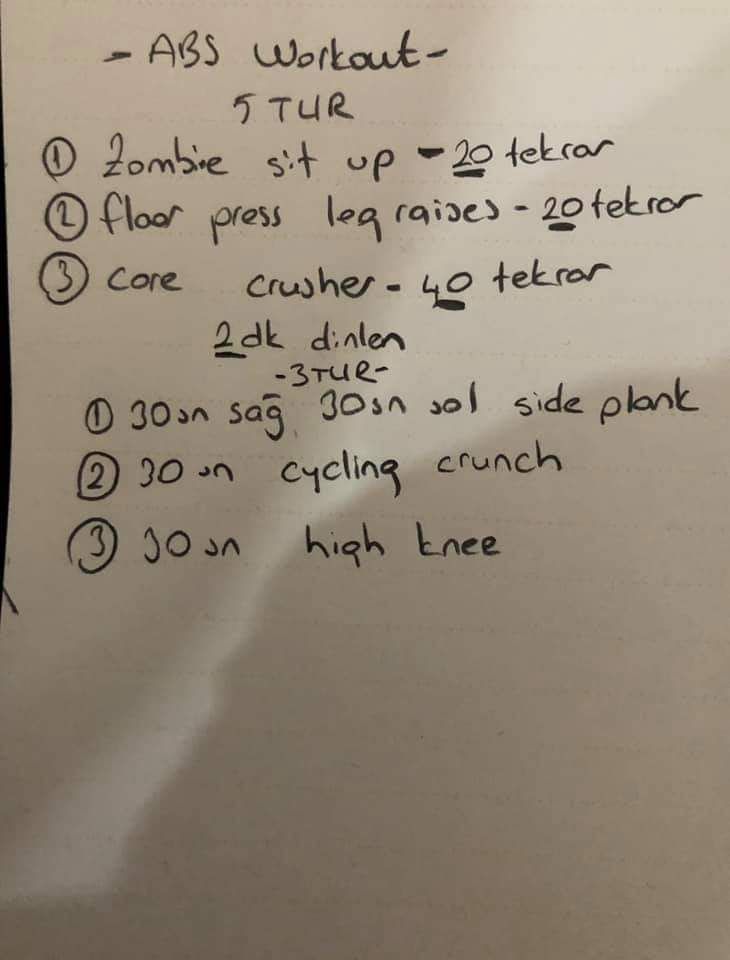 - ABS Workout -
5 TUR
① Zombie sit up - 20 tekrar
② floor press leg raises - 20 tekrar
③ core crusher - 40 tekrar
2dk dinlen
-3TUR-
① 30sn sağ, 30sn sol side plank
② 30 sn cycling crunch
③ 30 sn high knee